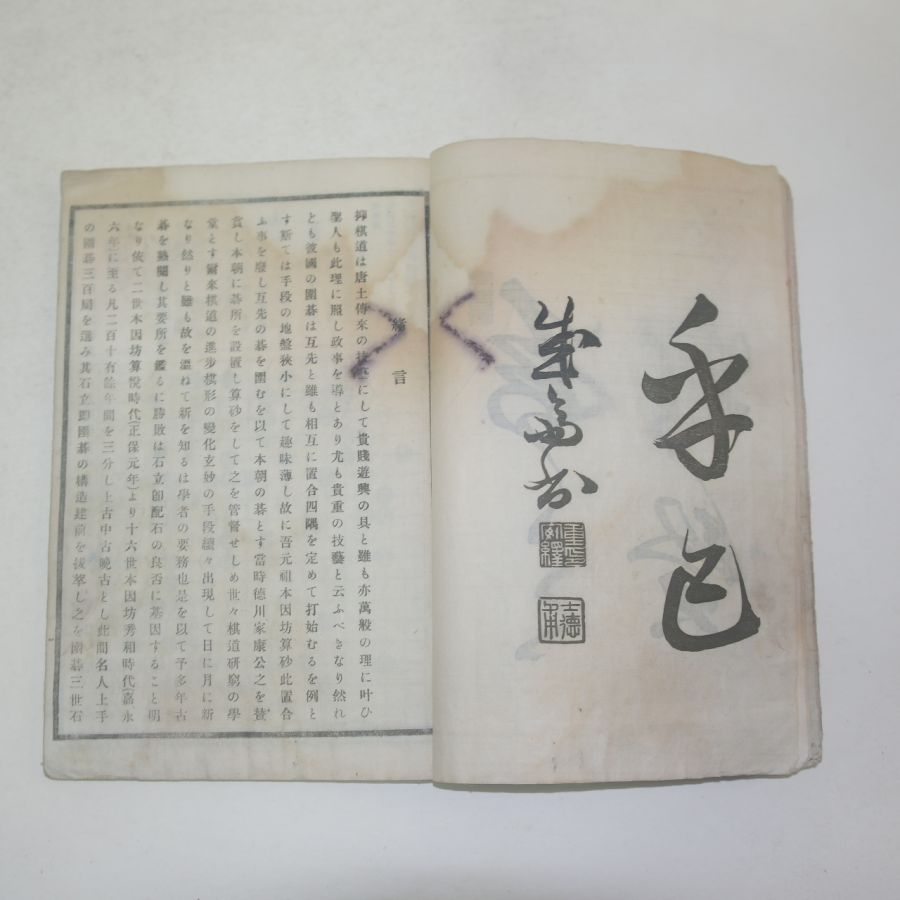 手已
緒言
抑棋道は唐土傳來の技藝にして貴賤遊興の具と雖も亦萬般の理に叶ひ
聖人も此理に照し政事を導とあり尤も貴重の技藝と云ふべきなり然れ
とも彼國の圍碁は互先と雖も相互に置合四隅を定めて打始むるを例と
す斯ては手段の地盤狹小にして趣味薄し故に吾元祖本因坊算砂此置合
ふ事を廢し互先の碁を圍むを以て本朝の碁とす當時德川家康公之を賛
賞し本朝に碁所を設置し算砂をして之を管督せしめ世々棋道硏窮の學
堂とす爾來棋道の進步棋形の變化玄妙の手段續々出現して日に月に新
なり然りと雖も故を溫ねて新を知るは學者の要務也是を以て予多年古
碁を熟閱し其要所を鑑るに勝敗は石立卽配石の良否に基因すること明
なり依て二世本因坊算悅時代(正保元年)より十六世本因坊秀和時代(嘉永
六年)に至る凡二百十有餘年間を三分し上古中古晚古とし此間名人上手
の圍碁三百局を選み其石立卽圍碁の構造建前を拔萃し之を圍碁三世石